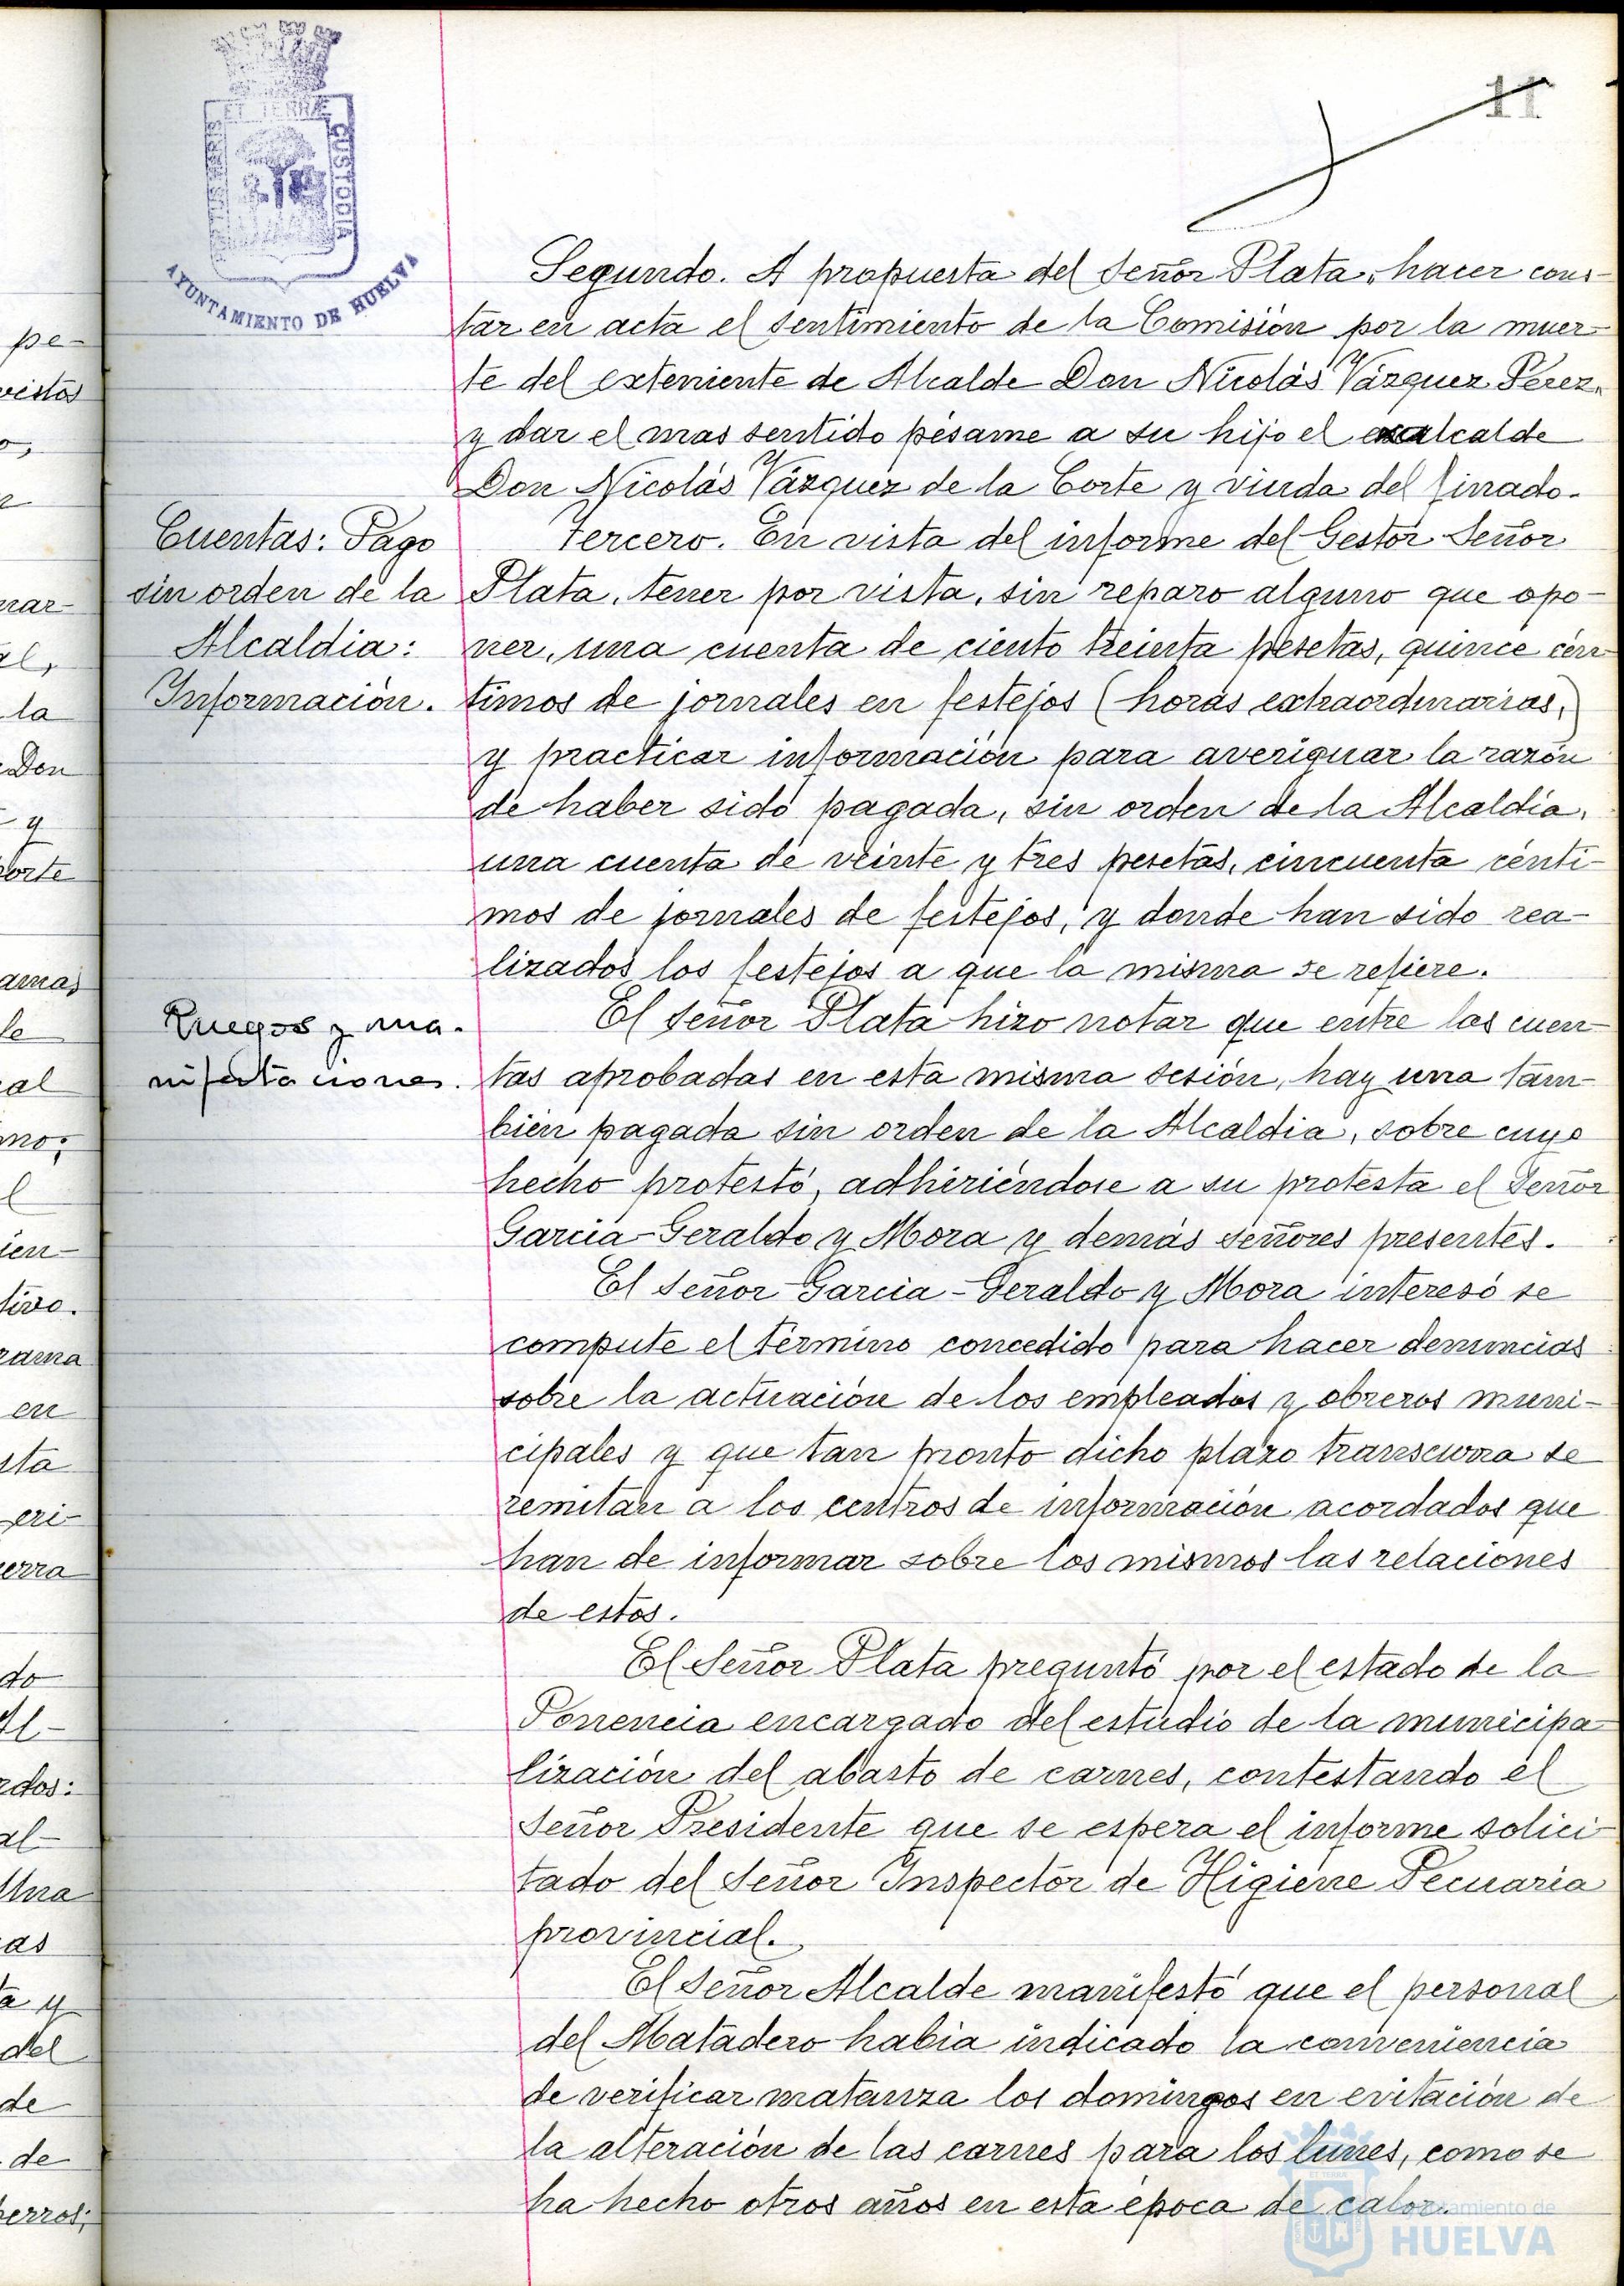 11
PORTUS MARIS ET TERRÆ CUSTODIA
AYUNTAMIENTO DE HUELVA
Segundo. A propuesta del Señor Plata, hacer cons-
tar en acta el sentimiento de la Comisión por la muer-
te del exteniente de Alcalde Don Nicolás Vázquez Pérez,
y dar el mas sentido pésame a su hijo el exalcalde
Don Nicolás Vázquez de la Corte y viuda del finado.
Cuentas: Pago
sin orden de la
Alcaldia:
Información.
Tercero. En vista del informe del Gestor Señor
Plata, tener por vista, sin reparo alguno que opo-
ner, una cuenta de ciento treinta pesetas, quince cén-
timos de jornales en festejos (horas extraordinarias,)
y practicar información para averiguar la razón
de haber sido pagada, sin orden de la Alcaldía,
una cuenta de veinte y tres pesetas, cincuenta cénti-
mos de jornales de festejos, y donde han sido rea-
lizados los festejos a que la misma se refiere.
Ruegos y ma-
nifestaciones.
El Señor Plata hizo notar que entre las cuen-
tas aprobadas en esta misma sesión, hay una tam-
bien pagada sin orden de la Alcaldia, sobre cuyo
hecho protestó, adhiriéndose a su protesta el Señor
Garcia-Geraldo y Mora y demás señores presentes.
El Señor Garcia-Geraldo y Mora interesó se
compute el término concedido para hacer denuncias
sobre la actuación de los empleados y obreros muni-
cipales y que tan pronto dicho plazo transcurra se
remitan a los centros de información acordados que
han de informar sobre los mismos las relaciones
de estos.
El Señor Plata preguntó por el estado de la
Ponencia encargado del estudio de la municipa-
lización del abasto de carnes, contestando el
Señor Presidente que se espera el informe solici-
tado del Señor Inspector de Higiene Pecuaria
provincial.
El Señor Alcalde manifestó que el personal
del Matadero habia indicado la conveniencia
de verificar matanza los domingos en evitación de
la alteración de las carnes para los lunes, como se
ha hecho otros años en esta época de calor.
Ayuntamiento de
HUELVA
pe-
vistos
o,
nar-
al,
la
Don
y
Corte
ama,
le
al
mo:
l
ien-
tivo.
rama
en
sta
eri-
erra
do
Al-
rdos:
al-
Una
as
a y
del
de
de
perros;